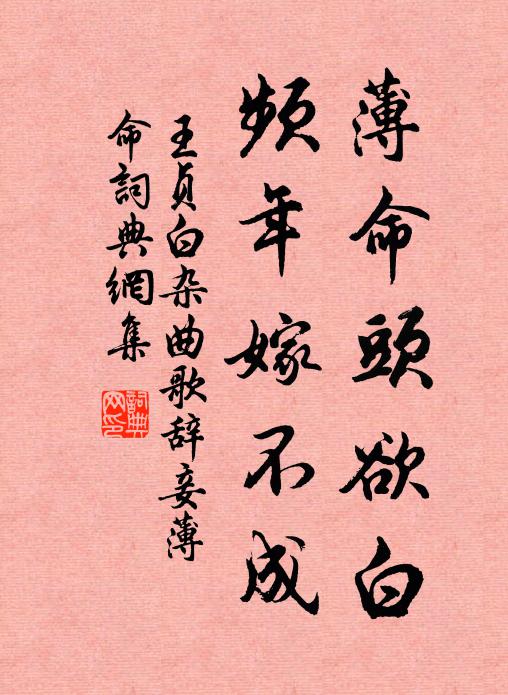 薄命頭欲白
頻年嫁不成
王貞白杂曲歌辞妾薄
命詞典網集
詞典
网印